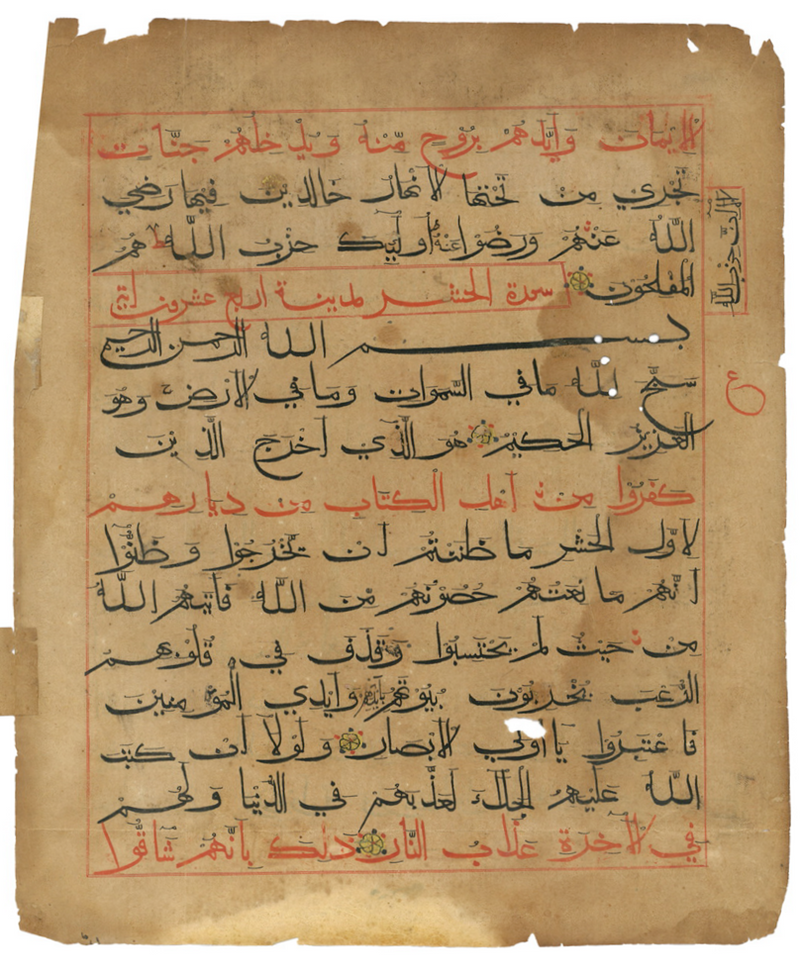 الْإِيمَانَ وَأَيَّدَهُمْ بِرُوحٍ مِّنْهُ وَيُدْخِلُهُمْ جَنَّاتٍ
تَجْرِي مِنْ تَحْتِهَا الْأَنْهَارُ خَالِدِينَ فِيهَا رَضِيَ
اللَّهُ عَنْهُمْ وَرَضُوا عَنْهُ أُولَٰئِكَ حِزْبُ اللَّهِ هُمُ
الا ان حزب الله
الْمُفْلِحُونَ سورة الحشر لمدينة اربع عشرون اية
بِسْمِ اللَّهِ الرَّحْمَٰنِ الرَّحِيمِ
سَبَّحَ لِلَّهِ مَا فِي السَّمَوَاتِ وَمَا فِي الْأَرْضِ وَهُوَ
ع
الْعَزِيزُ الْحَكِيمُ هُوَ الَّذِي أَخْرَجَ الَّذِينَ
كَفَرُوا مِنْ أَهْلِ الْكِتَابِ مِنْ دِيَارِهِمْ
لِأَوَّلِ الْحَشْرِ مَا ظَنَنْتُمْ أَنْ يَخْرُجُوا وَظَنُّوا
أَنَّهُمْ مَا نِعَتُهُمْ حُصُونُهُمْ مِّنَ اللَّهِ فَأَتَيهُمُ اللَّهُ
مِنْ حَيْثُ لَمْ يَحْتَسِبُوا وَقَذَفَ فِي قُلُوبِهِمُ
الرُّعْبَ يُخْرِبُونَ بُيُوتَهُمْ بِأَيْدِيهِمْ وَأَيْدِي الْمُؤْمِنِينَ
فَاعْتَبِرُوا يَا أُولِي الْأَبْصَارِ وَلَوْلَا أَنْ كَتَبَ
اللَّهُ عَلَيْهِمُ الْجَلَاءَ لَعَذَّبَهُمْ فِي الدُّنْيَا وَلَهُمْ
فِي الْآخِرَةِ عَذَابُ النَّارِ ذَٰلِكَ بِأَنَّهُمْ شَاقُّوا